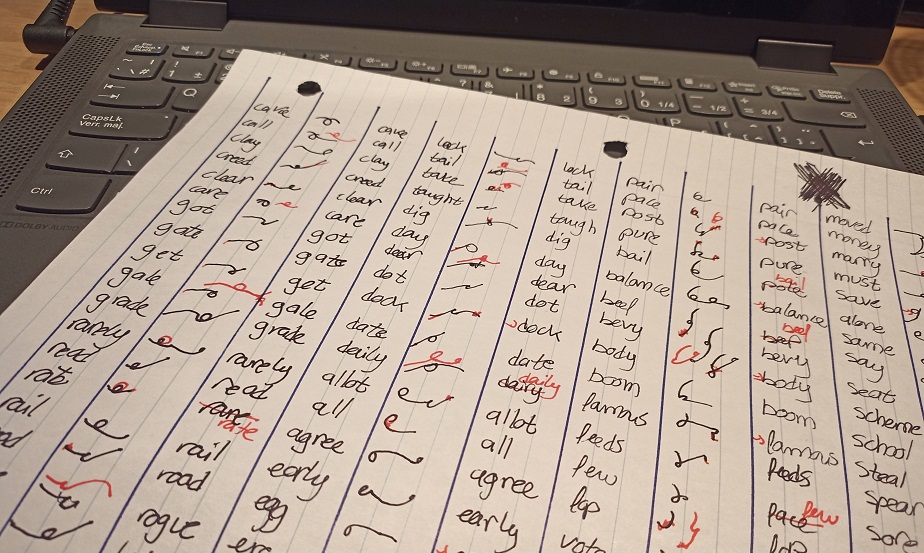 CapsLk
Verr. maj.
Ctrl
Q
DOLBY AUDIO
cave
call
clay
creed
clear
care
got
gate
get
gale
grade
rarely
read
rail
cave
call
clay
creed
clear
care
got
gate
get
gale
grade
rarely
read
rate
rail
road
rogue
lack
tail
take
taught
dig
day
dear
dot
dock
date
daily
allot
all
agree
early
egg
lack
tail
take
taugh
dig
day
dear
dot
dock
date
daily
dairy
allot
all
agree
early
pair
pace
post
pure
bail
balance
beef
bevy
body
boom
famous
feeds
few
fop
vote
pair
pace
post
pure
bail
balance
beef
bevy
body
boom
famous
feeds
few
moved
money
marry
must
save
alone
same
say
seat
scheme
school
steal
spear